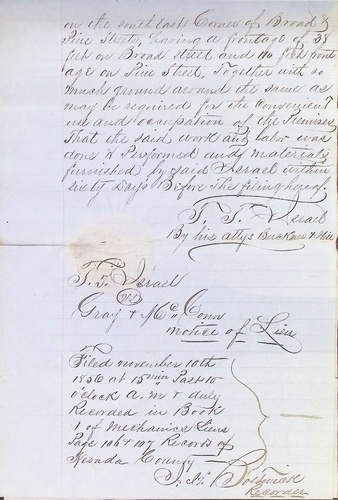 on the south East Corner of Broad &
Pine Streets, having a frontage of 38
feet on Broad street and 110 feet front
age on Pine Street, Together with so
much ground around the same as
may be required for the Convenient
use and occupation of the Premises
That the said work and labor was
done & Performed and materials
furnished by said Israel within
sixty Days Before the filing hereof.
T. T. Israel
By his attys
T. T. Israel
vs
Gray & McConn
notice of Lien
Filed november 10th
1856 at 15 min Past 10
o'clock a. m & duly
Recorded in Book
1 of Mechanics Liens
Page 106 & 107 Records of
Nevada County
Bostwick
Recorder